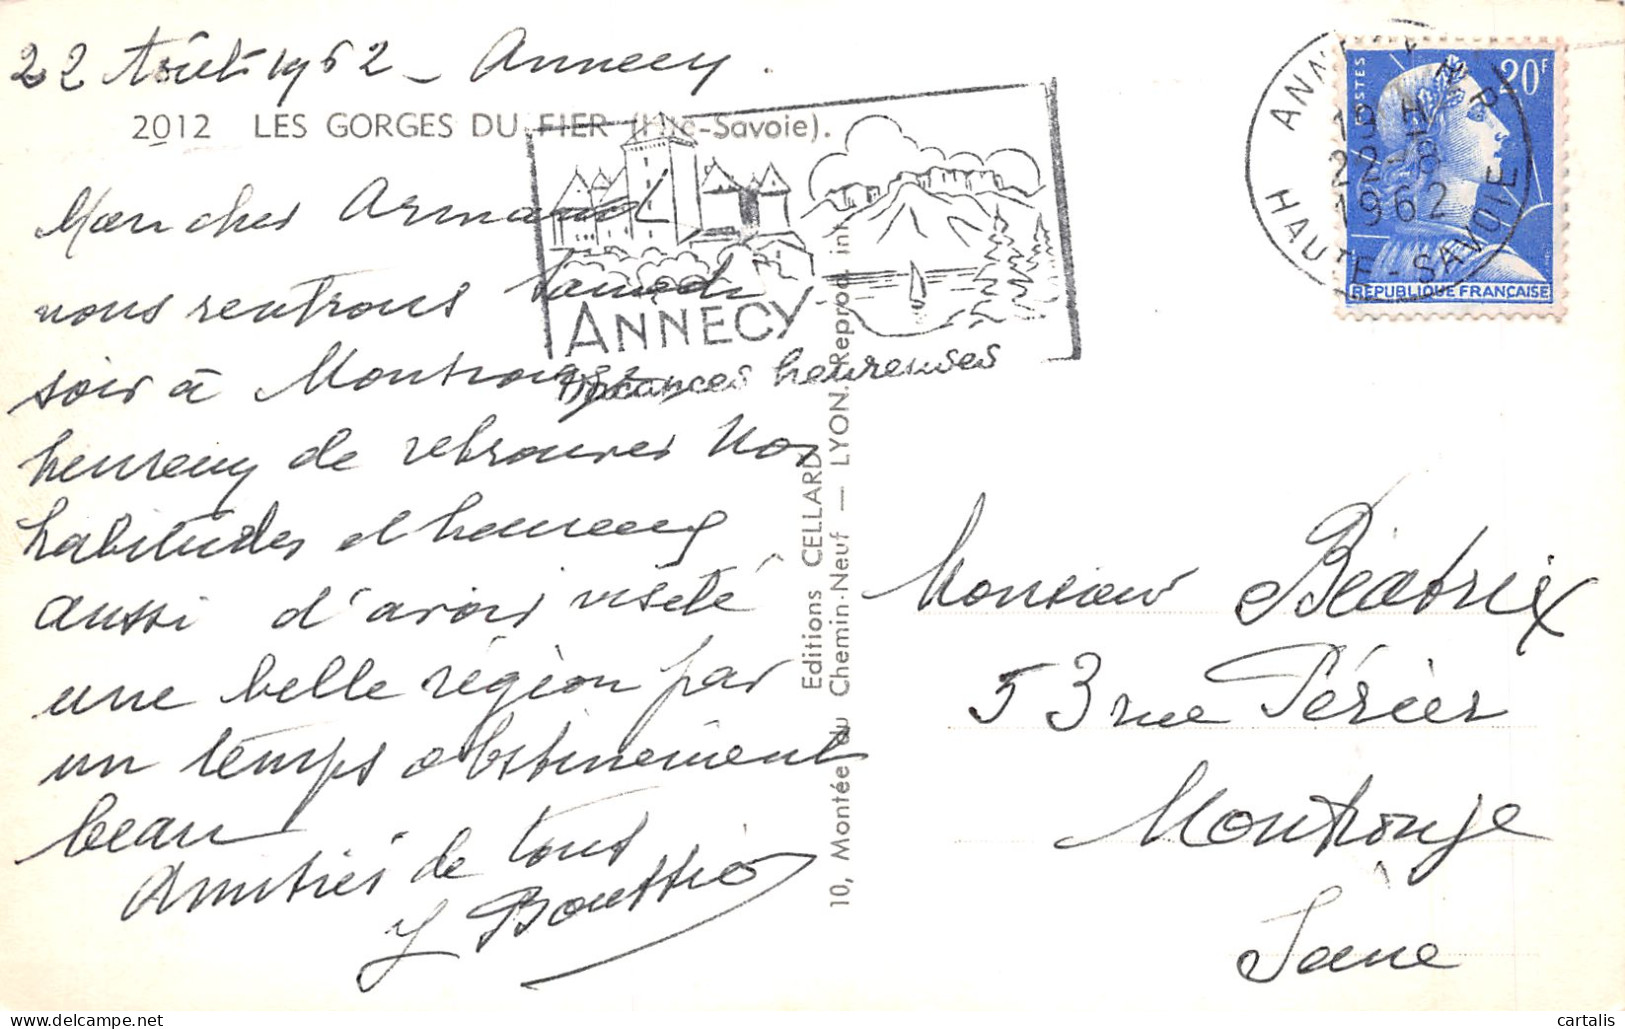 22 Août 1962 - Annecy.
2012 LES GORGES DU FIER (Hte-Savoie).
Mon cher Armand
nous rentrons samedi
soir à Montrouge
heureux de retrouver nos
habitudes et heureux
aussi d'avoir visité
une belle région par
un temps obstinément
beau
Amitiés de tous
Y Bouttió
ANNECY
Vacances heureuses
Editions CELLARD
10, Montée du Chemin-Neuf — LYON. Reprod. int.
ANNECY R.P.
18 H
22-8
1962
HAUTE-SAVOIE
POSTES
20F
REPUBLIQUE FRANÇAISE
Monsieur Béatrix
53 rue Périer
Montrouge
Seine
cartalis